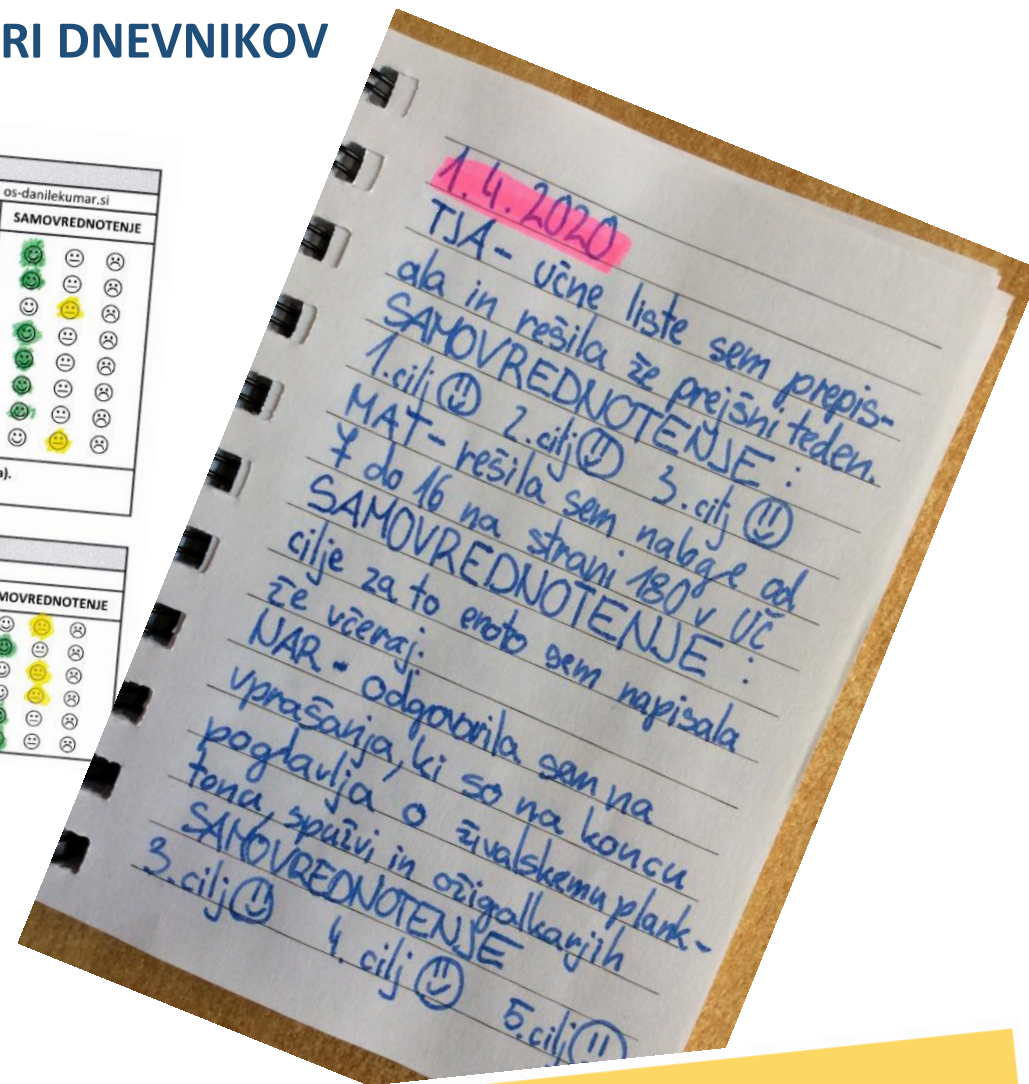 RI DNEVNIKOV
os-danilekumar.si
SAMOVREDNOTENJE
a).
MOVREDNOTENJE
1.4.2020
TJA - učne liste sem prepis-
ala in rešila že prejšni teden.
SAMOVREDNOTENJE :
1.cilj 2.cilj 3.cilj
MAT - rešila sem naloge od
7 do 16 na strani 180 v UČ
SAMOVREDNOTENJE :
cilje za to enoto sem napisala
že včeraj.
NAR - odgovorila sem na
vprašanja, ki so na koncu
poglavlja o živalskemu plank-
tonu, spužvi in ožigalkarjih
SAMOVREDNOTENJE
3.cilj 4.cilj 5.cilj